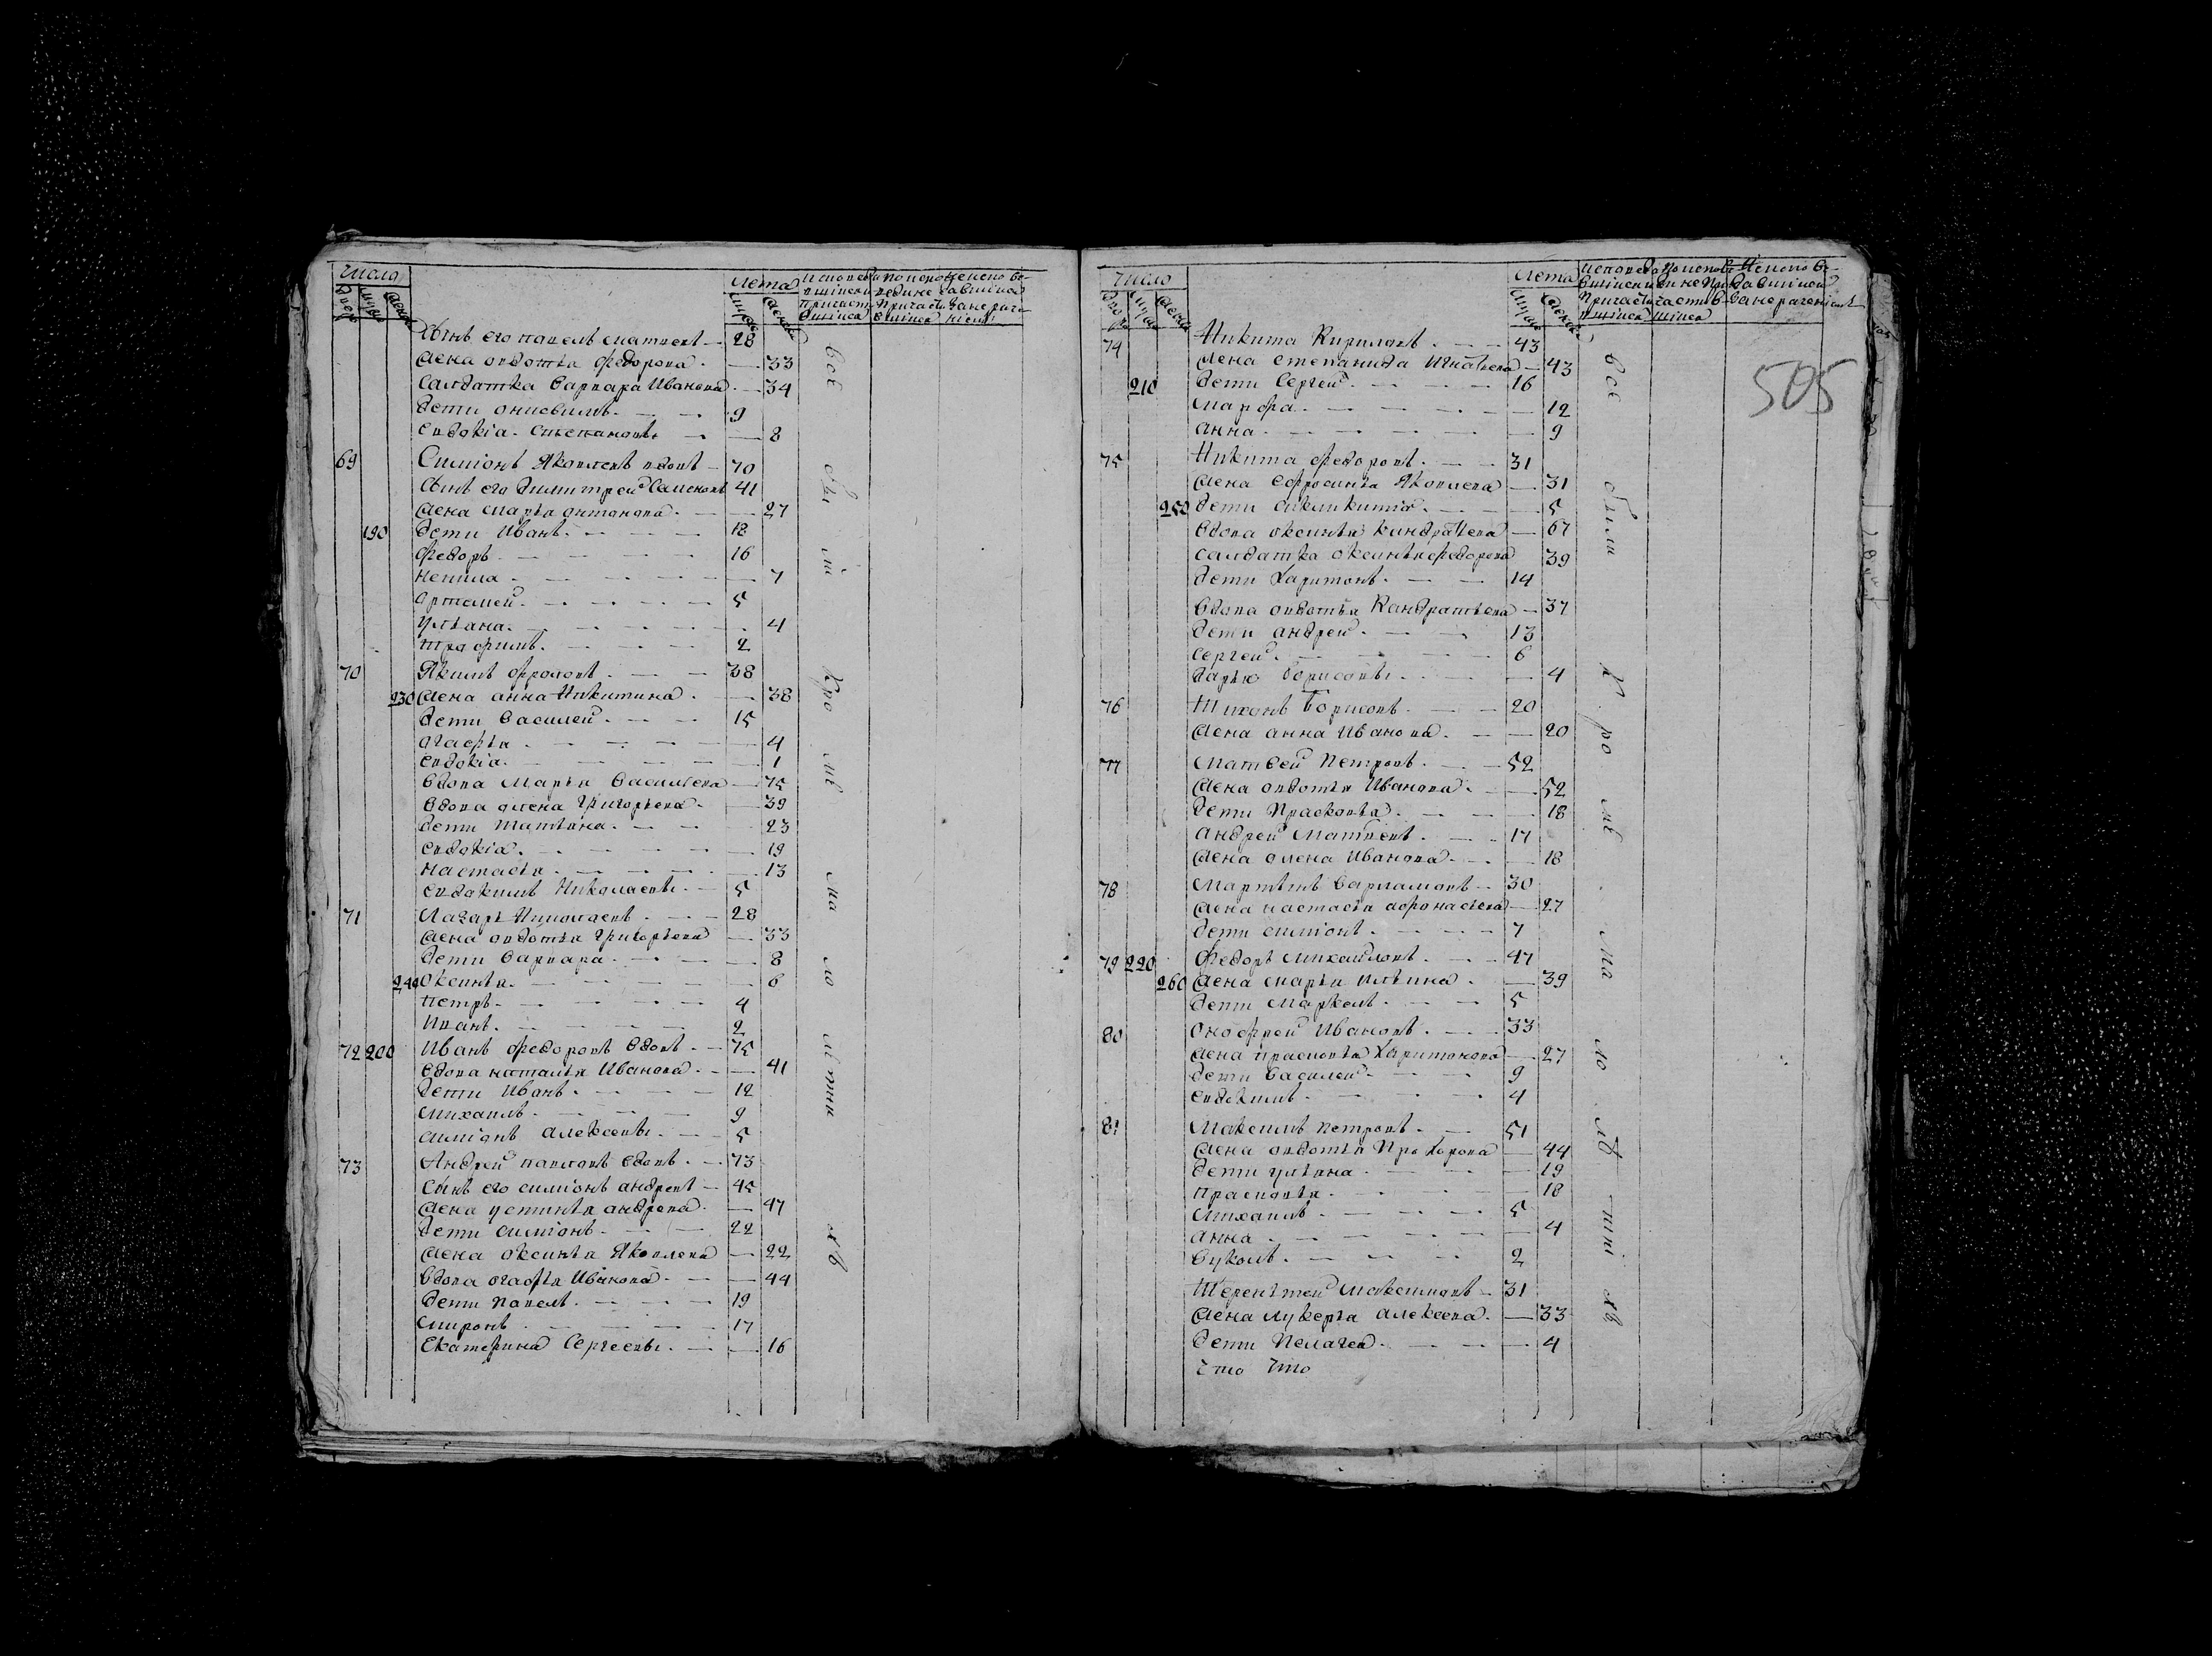 Число Лета
Сынъ его павелъ матвеевъ 28
Жена овдотья Федорова 33
Салдатка варвара Иванова 34
дети онисимъ 9
Евдокia Степановы 8
69 Симiонъ Яковлевъ вдовъ 70
Сынъ его димитрей Семеновъ 41
Жена марья антонова 27
190 дети Иванъ 18
Федоръ 16
ненила 7
Артамей 5
Ульяна 4
трафимъ 2
70 Якимъ фроловъ 38
230 Жена анна Никитина 38
дети Василей 15
огафья 4
Евдокia 1
Вдова Марья Васильева 75
Вдова алена Григорьева 39
дети Татьяна 23
Евдокia 19
настасья 13
Евдокимъ Николаевы 5
71 Лазарь Николаевъ 28
Жена овдотья Григорьева 33
дети Варвара 8
240 Оксинья 6
петръ 4
Иванъ 2
72 200 Иванъ федоровъ вдовъ 75
Вдова наталья Иванова 41
дети Иванъ 12
Михаилъ 9
симiонъ алексеевы 5
73 Андрей павловъ вдовъ 73
Сынъ его симiонъ андреевъ 45
Жена устинья андреева 47
дети симiонъ 22
Жена оксинья Яковлева 22
Вдова огафья Иванова 44
дети павелъ 19
миронъ 17
Екатерина Сергеевы 16
все
Кро ме
ма ло летн хъ
Число Лета
505
74 Никита Кириловъ 43
Жена степанида Игнатьева 43
210 дети Сергей 16
Марфа 12
Анна 9
75 Никита федоровъ 31
Жена Ефросинья Яковлева 31
250 дети 5
Вдова оксинья кандратьева 67
Салдатка оксинья федорова 39
дети Харитонъ 14
Вдова овдотья Кандратьева 37
дети андрей 13
Сергей 6
дарья борисовы 4
76 Тихонъ Борисовъ 20
Жена анна Иванова 20
77 Матвей Петровъ 52
Жена овдотья Иванова 52
дети Прасковья 18
Андрей Матвеевъ 17
Жена олена Иванова 18
78 Мартынъ Варламовъ 30
Жена настасья афонасьева 27
дети симiонъ 7
79 220 Федоръ михайловъ 47
260 Жена марья ильина 39
дети Маркелъ 5
80 Онофрей Ивановъ 33
Жена прасковья Харитонова 27
дети Василей 9
Евдокимъ 4
81 Максимъ Петровъ 51
Жена овдотья Прохорова 44
дети ульяна 19
прасковья 18
Михаилъ 5
Анна 4
Вуколъ 2
Терентей максимовъ 31
Жена лукерья алексеева 33
дети Пелагея 4
Что Что
все были
К ро ме
ма ло ле тнi хъ